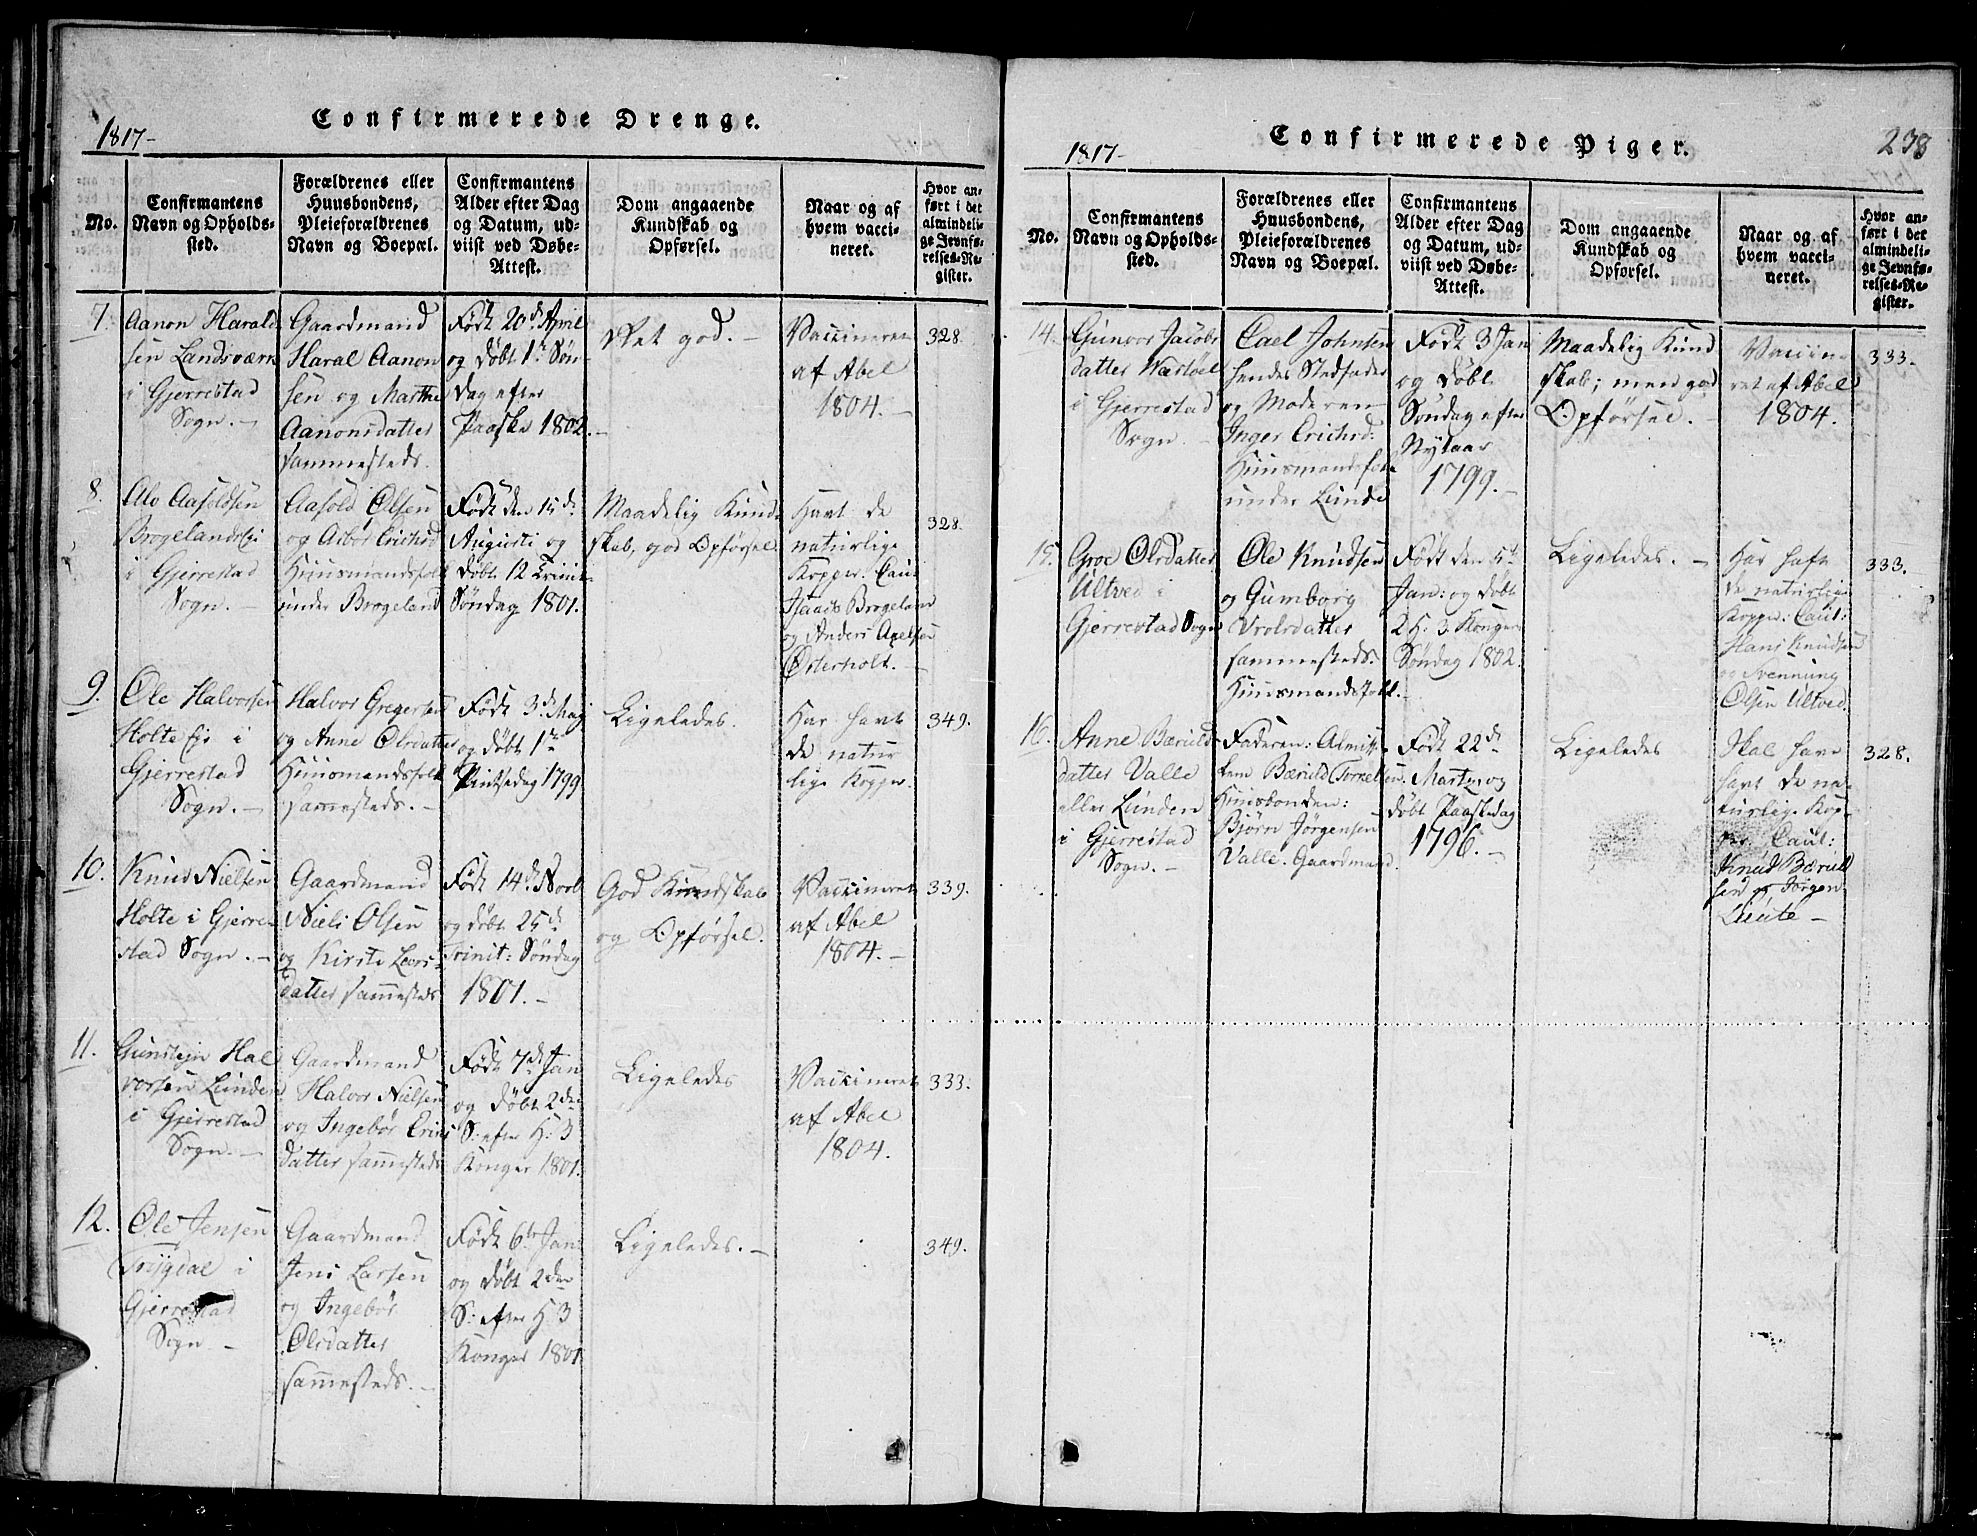 Confirmerede Drenge.
1817-
No.
Confirmantens
Navn og Opholds-
sted.
Forældrenes eller
Huusbondens,
Pleieforældrenes
Navn og Boepæl.
Confirmantens
Alder efter Dag
og Datum, ud-
viist ved Døbe-
Attest.
Dom angaaende
Kundskab og
Opførsel.
Naar og af
hvem vacci-
neret.
Hvor an-
ført i det
almindeli-
ge Jevnfø-
relses-Re-
gister.
7.
Aanon Harald
sen Landsværk
i Gjerrestad
Sogn. -
Gaardmand
Haral Aanon
sen og Marthe
Aanonsdatter
sammesteds.
Født 20d April
og døbt 1te Søn-
dag efter
Paaske 1802. -
ret god. -
Vaccineret
af Abel
1804. -
328.
8.
Alv Aasoldsen
Brogelandsei
i Gjerrestad
Sogn. -
Aasold Olsen
og Asbør Erichsd
Huusmandsfolk
under Brogeland
Født den 15de
Augusti og
døbt 12 Trinit.
Søndag 1801.
Maadelig Kund-
skab, god Opførsel
Havt de
naturlige
Kopper. Caut:
Isaach Brogeland
og Anders Axelsen
Østerholt. -
328.
9.
Ole Halvorsen
Holte Ei i
Gjerrestad
Sogn. -
Halvor Gregersen
og Anne Olsdatter
Huusmandsfolk
sammesteds. -
Født 3d Maj
og døbt 1te
Pintsedag 1799
Ligeledes.
Har havt
de natur
lige Kopper.
349.
10.
Knud Nielsen
Holte i Gjerre-
stad Sogn. -
Gaardmand
Niels Olsen
og Kirste Lars-
datter sammesteds
Født 14d Novb
og døbt 25d
Trinit: Søndag
1801. -
God Kundskab
og Opførsel.
Vaccineret
af Abel
1804. -
339.
11.
Gunstejn Hal
vorsen Lunden
i Gjerrestad
Sogn. -
Gaardmand
Halvor Nielsen
og Ingebør Erics
datter sammesteds
Født 7d Jan
og døbt 2den
S: efter H: 3
Konger 1801.
Ligeledes
Vaccineret
af Abel
1804.
333.
12.
Ole Jensen
i
Gjerrestad
Sogn -
Gaardmand
Jens Larsen
og Ingebør
Olsdatter
sammesteds. -
Født 6te Jan:
og døbt 2den
S: efter H: 3
Konger 1801
Ligeledes. -
349.
Confirmerede Piger.
238
1817-
No.
Confirmantens
Navn og Opholds-
sted.
Forældrenes eller
Huusbondens,
Pleieforældrenes
Navn og Boepæl.
Confirmantens
Alder efter Dag
og Datum, ud-
viist ved Døbe-
Attest.
Dom angaaende
Kundskab og
Opførsel.
Naar og af
hvem vacci-
neret.
Hvor an-
ført i det
almindeli-
ge Jevnfø-
relses-Re-
gister.
14.
Gunvor Jacobs
datter
i Gjerrestad
Sogn. -
Carl Johnsen
hendes Stedfader
og Moderen
Inger Erichsd:
Huusmandsfolk
under Lunde
Født 3 Jan
og døbt
Søndag efter
Nytaar
1799. -
Maadelig Kund
skab; men god
Opførsel. -
Vaccine-
ret af Abel
1804.
333.
15.
Groe Olsdatter
Ultved i
Gjerrestad Sogn
Ole Knudsen
og Gumborg
Vrolsdatter
sammesteds.
Huusmandsfolk. -
Født den 5te
Jan: og døbt
2 H: 3 Konger
Søndag 1802.
Ligeledes. -
Har haft
de naturlige
Kopper: Caut:
Hans Knudsen
og Svennung
Olsen Ultved
333.
16.
Anne Bæruld-
datter Valle
eller Lunden
i Gjerrestad
Sogn. -
Faderen: Almiss-
lem Bæruld
Huusbonden:
Bjørn Jørgensen
Valle. Gaardmand.
Født 22d
Marty og
døbt Paaskedag
1796. -
Ligeledes
Skal have
havt de na-
turlige Kop-
per. Caut:
Knud Bæruld
sen og Jørgen
328.